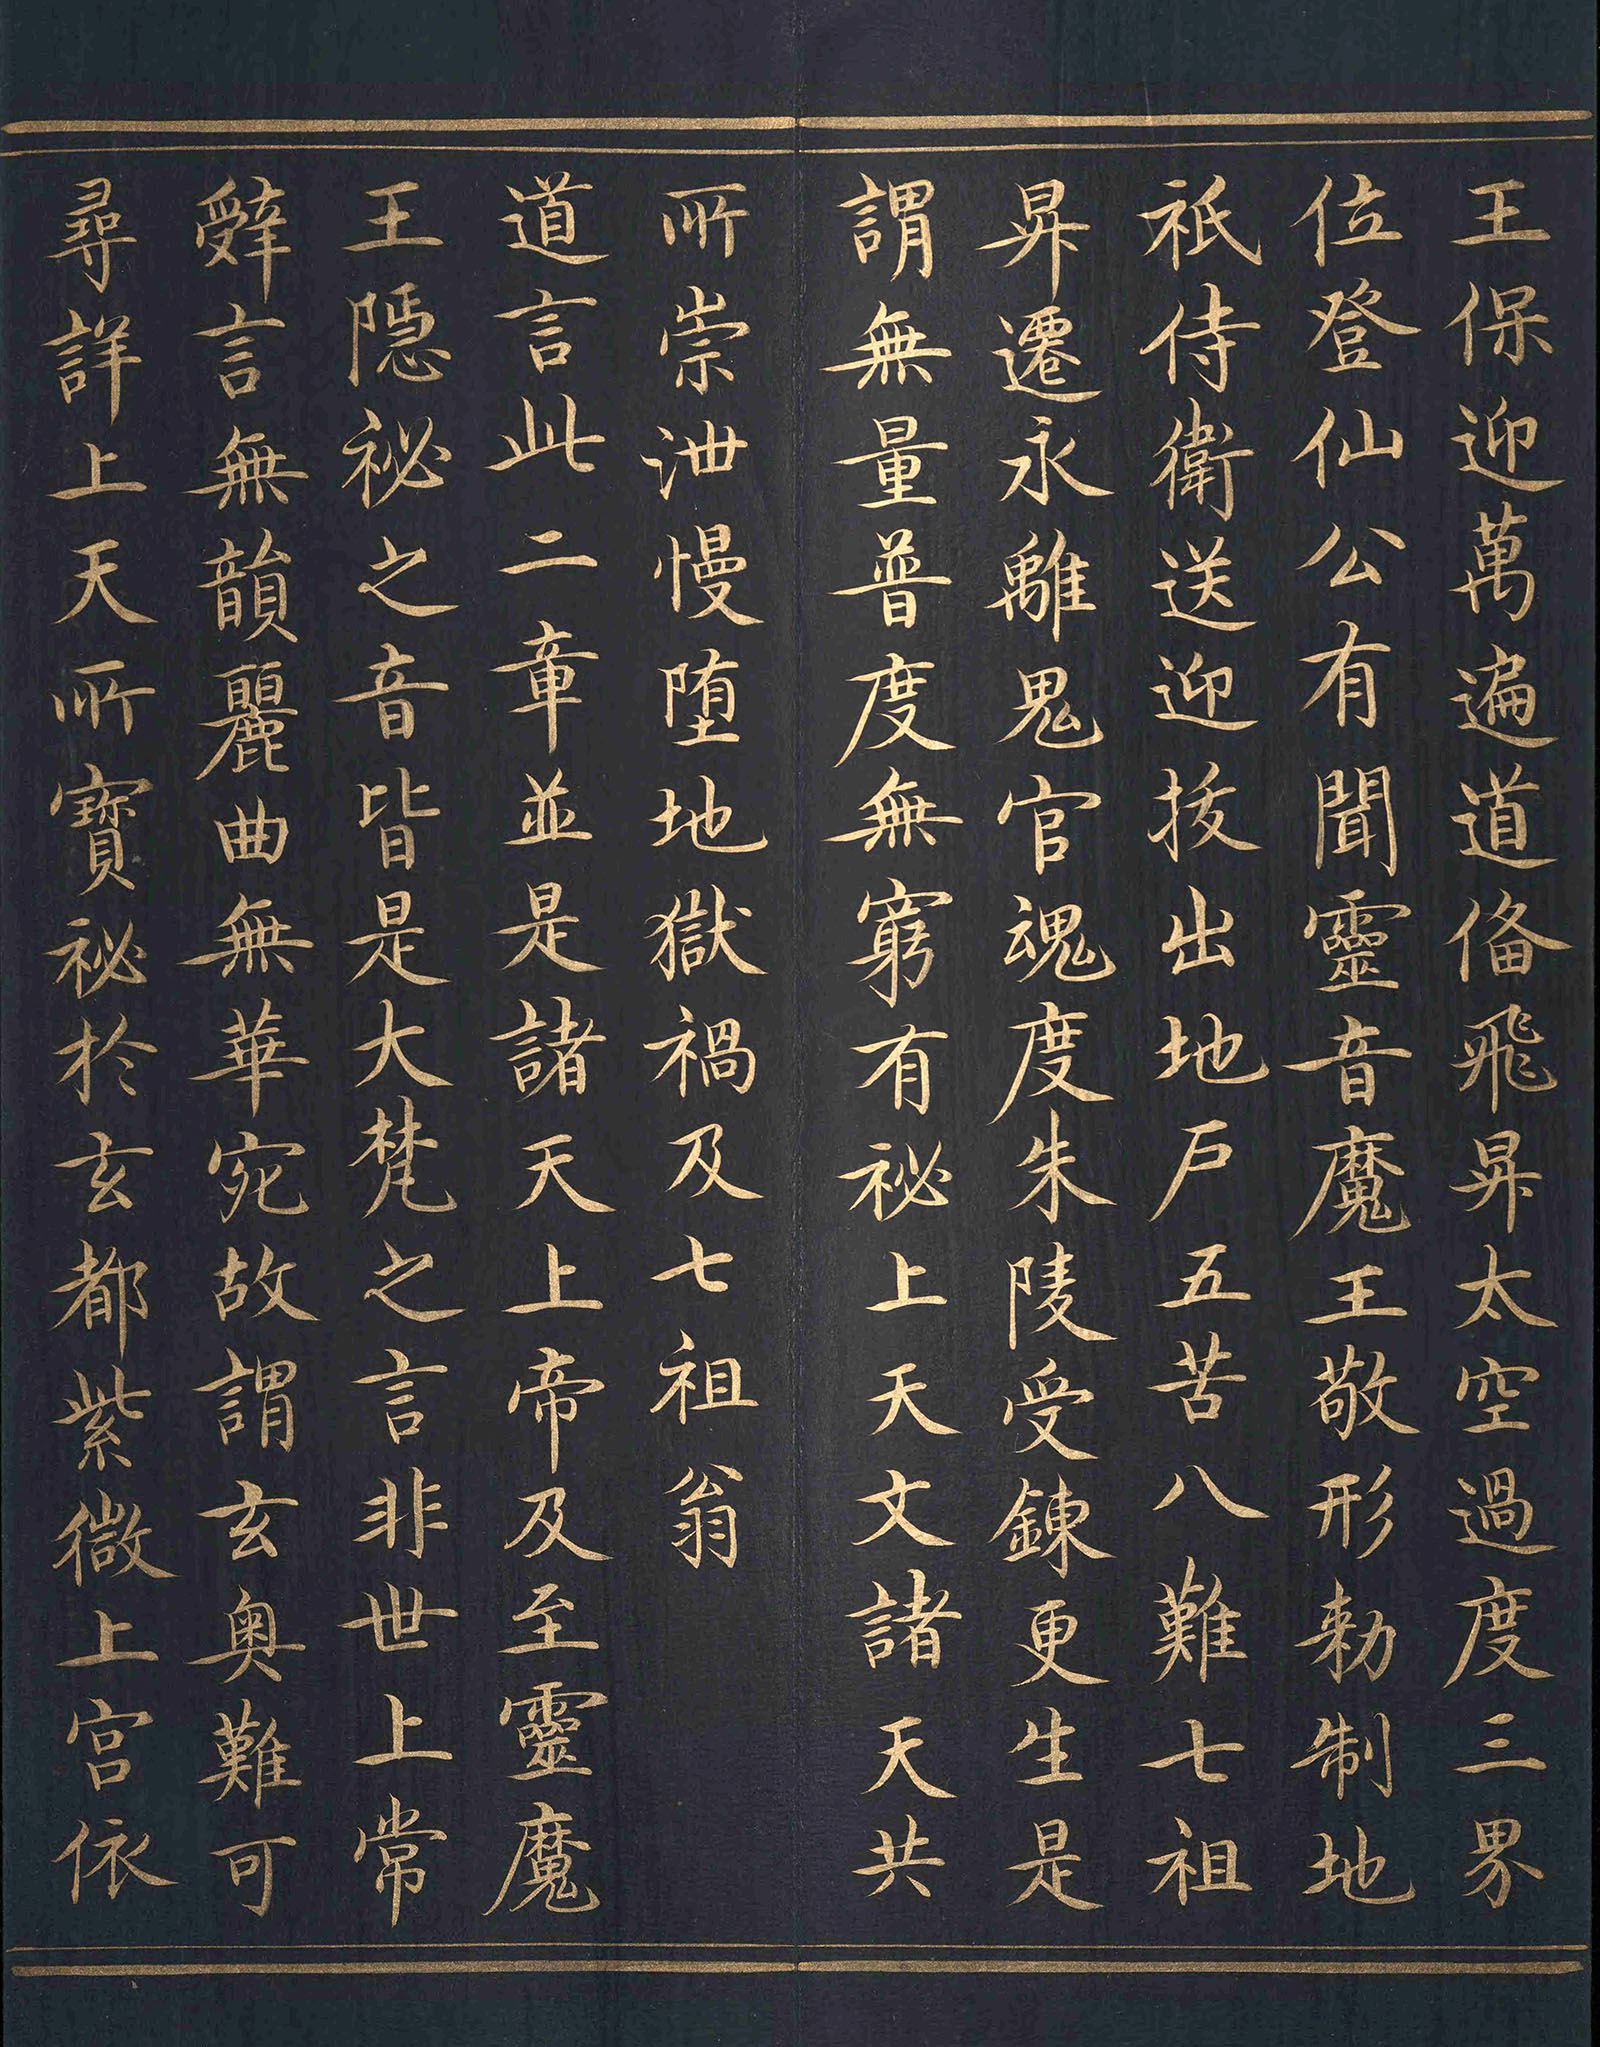 王保迎萬遍道俻飛昇太空過度三界
位登仙公有聞靈音魔王敬形勑制地
祇侍衛送迎拔出地戶五苦八難七祖
昇遷永離鬼官魂度朱陵受鍊更生是
謂無量普度無窮有祕上天文諸天共
所崇泄慢墮地獄禍及七祖翁
道言此二章並是諸天上帝及至靈魔
王隱祕之音皆是大梵之言非世上常
辭言無韻麗曲無華宛故謂玄奧難可
尋詳上天所寶祕於玄都紫微上宮依